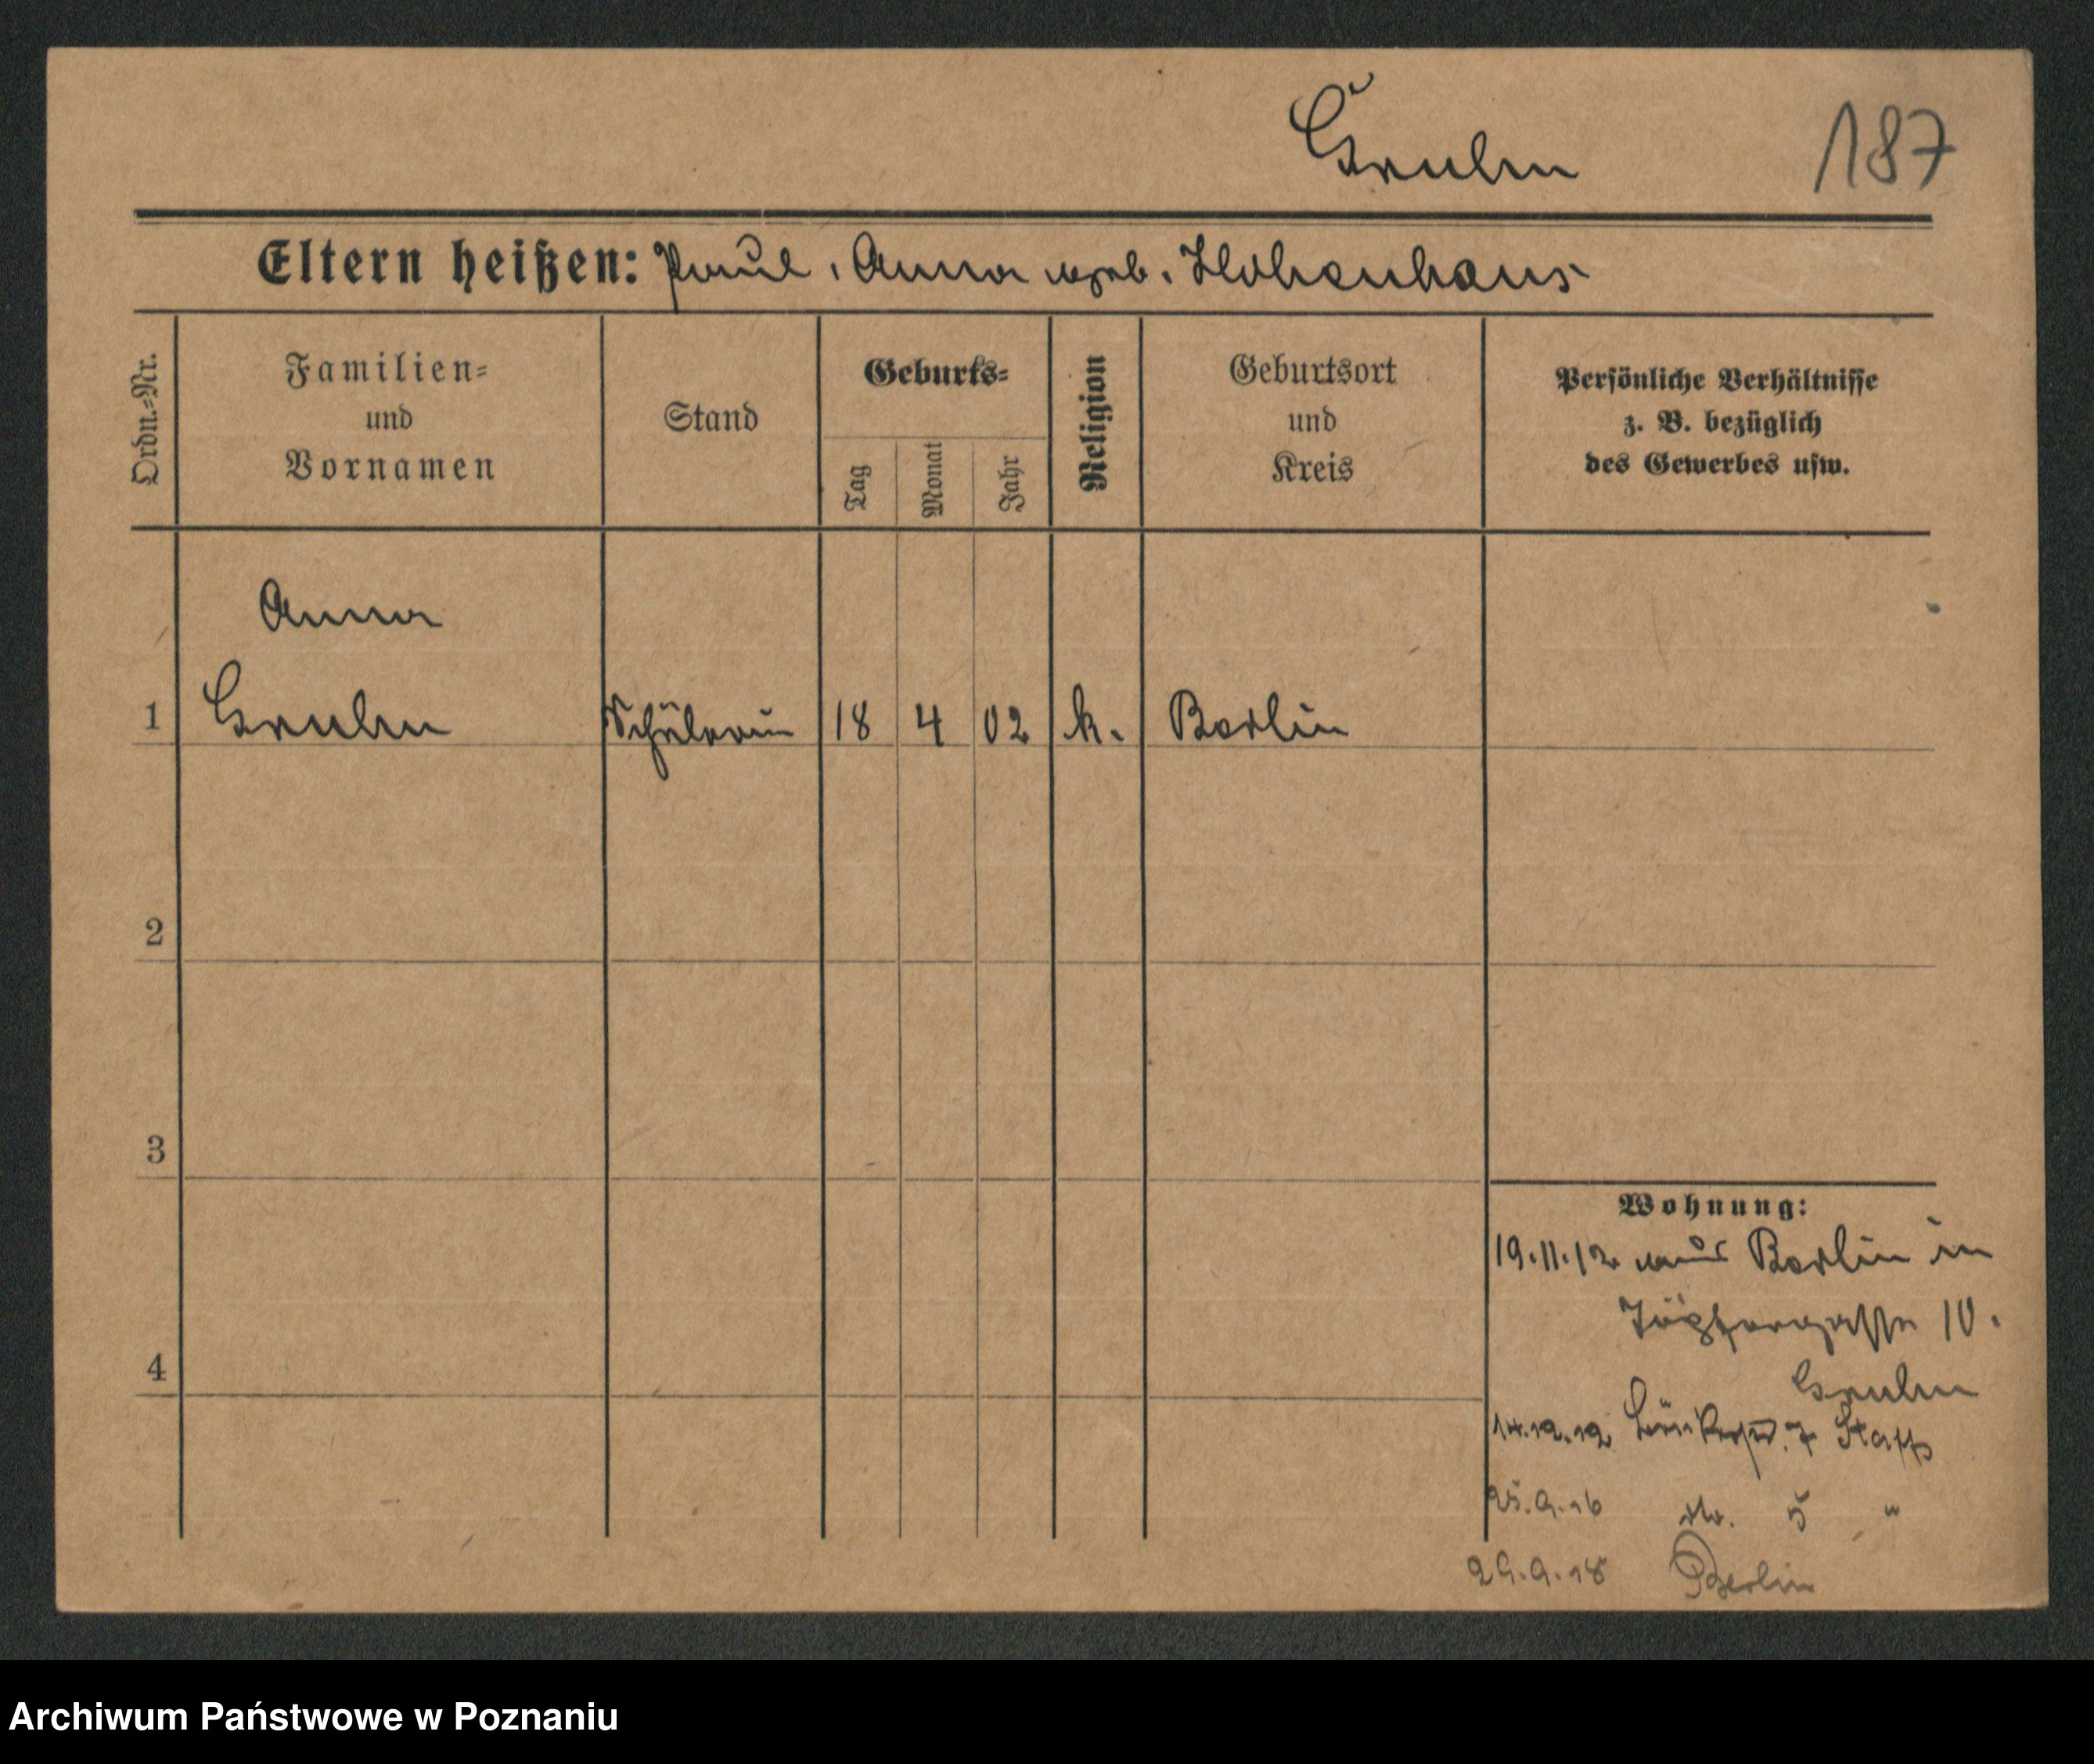 Gruhn
187
Eltern heißen: Paul, Anna geb. Hohenhaus
Ordn.-Nr.
Familien-
und
Vornamen
Stand
Geburts-
Tag
Monat
Jahr
Religion
Geburtsort
und
Kreis
Persönliche Verhältnisse
z. B. bezüglich
des Gewerbes usw.
Anna
1 Gruhn Schülerin 18 4 02 k. Berlin
2
3
4
Wohnung:
19.11.12 aus Berlin in
Töpfergasse 10.
Gruhn
14.12.12 7
25.9.16 do. 5 "
29.9.18 Berlin
Archiwum Państwowe w Poznaniu